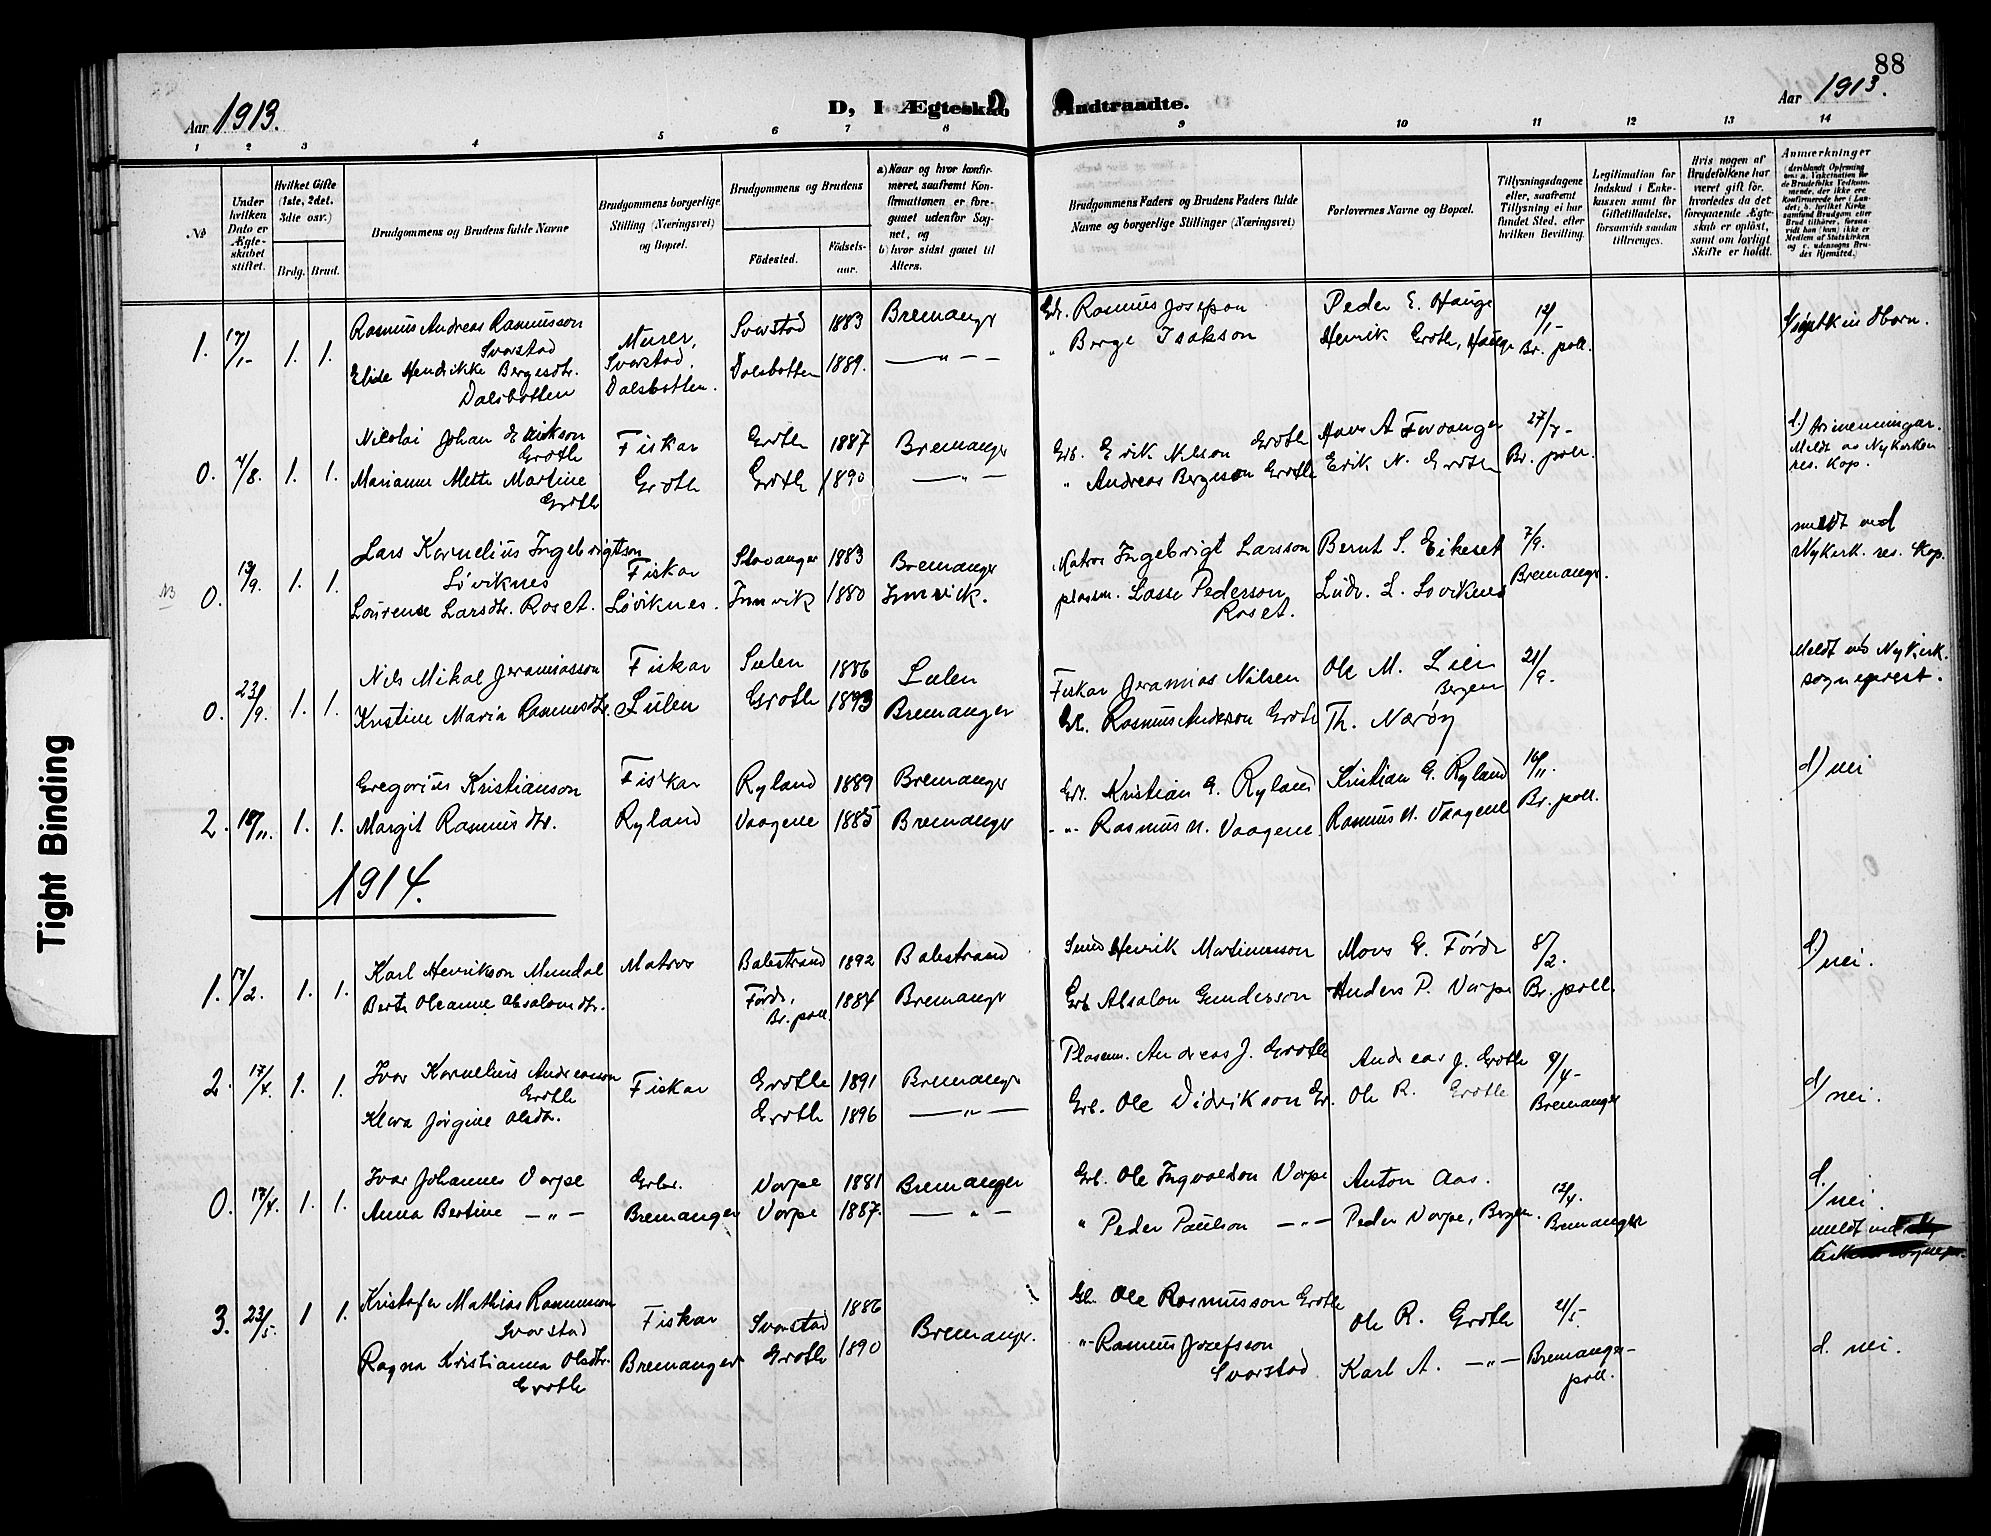 88
Aar 1913.
D, I Ægteskab Indtraadte.
Aar 1913.
1 2 3 4 5 6 7 8 9 10 11 12 13 14
No
Under hvilken Dato er Ægteskabet stiftet.
Hvilket Gifte (1ste, 2det, 3die osv.)
Brdg. Brud.
Brudgommens og Brudens fulde Navne
Brudgommens borgerlige Stilling (Næringsvei) og Bopæl.
Brudgommens og Brudens
Fødested.
Fødselsaar.
a) Naar og hvor konfirmeret, saafremt Konfirmationen er foregaaet udenfor Sognet, og
b) hvor sidst gaaet til Alters.
Brudgommens Faders og Brudens Faders fulde Navne og borgerlige Stillinger (Næringsvei)
Forlovernes Navne og Bopæl.
Tillysningsdagene eller, saafremt Tillysning ei har fundet Sted, efter hvilken Bevilling.
Legitimation for Indskud i Enkekassen samt for Giftetilladelse, forsaavidt saadan tiltrenges.
Hvis nogen af Brudefolkene har været gift før, hvorledes da det foregaaende Ægteskab er opløst, samt om lovligt Skifte er holdt.
Anmerkninger
1. 17/1- 1. 1. Rasmus Andreas Rasmusson Svorstad Murer, Svorstad. Svorstad 1883 Bremanger Gdr. Rasmus Josefson Peder E. Hauge 12/1-
Elide Hendrikke Bergesdtr. Dalsbotten Dalsbotten. Dalsbotten 1889. — " — " Berge Isakson Henrik Grotle, Hauge Br. poll.
0. 4/8. 1. 1. Nicolai Johan Erikson Grotle Fiskar Grotle 1887 Bremanger Grb. Erik Nilson Grotle Hans A Furvanger 27/7-
Marianne Mette Martine Grotle Grotle Grotle 1890 — " — " Andreas Bergeson Grotle Erik N. Grotle Br. poll. Meldt av Nykirken res. kap.
NB 0. 13/9. 1. 1. Lars Kornelius Ingebrigtson Løviknes Fiskar Stavanger 1883 Bremanger Matros Ingebrigt Larsson Bernt S. Eikeset 7/9. meldt ved Nykirk. res. kap.
Laurense Larsdtr. Roset. Løviknes. Innvik 1880 Innvik. plassm. Lasse Pederson Roset. Ludv. L. Løviknes Bremanger.
0. 23/9. 1. 1. Nils Mikal Jeramiasson Fiskar Sulen 1886 Sulen Fiskar Jeramias Nilsen Ole M. Lien Bergen 21/9. Meldt ved Nykirk. sogneprest.
Kristine Maria Rasmusdtr. Sulen Grotle 1893 Bremanger Gb. Rasmus Anderson Grotle Th. Narøy
2. 18/11. 1. 1. Gregorius Kristianson Fiskar Ryland 1889 Bremanger Gdr. Kristian G. Ryland Kristian G. Ryland 16/11. d) nei
Margit Rasmusdtr. Ryland Vaagene 1885 Bremanger - " - Rasmus N. Vaagene. Rasmus N. Vaagene Br. poll.
1914.
1. 17/2. 1. 1. Karl Henrikson Mundal Matros Balestrand 1892 Balestrand Smed Henrik Martinusson Mons G. Førde 8/2. d) nei.
Berte Oleanne Absalomdtr. Førde, Br. poll. 1884 Bremanger Grb Absalon Gunderson Anders P. Vorpe Br. poll.
2. 17/4. 1. 1. Ivar Kornelius Andreasson Grotle Fiskar Grotle 1891 Bremanger Plassm. Andreas J. Grotle Andreas J. Grotle 9/4- d) nei.
Klara Jørgine Olsdtr. Grotle 1896 — " — Grb. Ole Didrikson Gr. Ole R. Grotle Bremanger
0. 17/4. 1. 1. Ivar Johannes Vorpe Grbr. Vorpe 1881 Bremanger Grb. Ole Ingvaldson Vorpe Anton Aas. 12/4. d. nei.
Anna Bertine — " — Bremanger Vorpe 1887. — " — " Peder Paulson — " — Peder Vorpe, Bergen. Bremanger meldt ved
3. 23/5. 1 1. Kristofer Mathias Rasmusson Svorstad Fiskar Svorstad 1886 Bremanger. Gb. Ole Rasmusson Grotle Ole R. Grotle 21/5. d. nei.
Ragna Kristianna Olsdtr. Grotle Bremanger Grotle 1890 - " - Rasmus Josefsson Svorstad Karl A. — " — Bremanger-poll.
Tight Binding